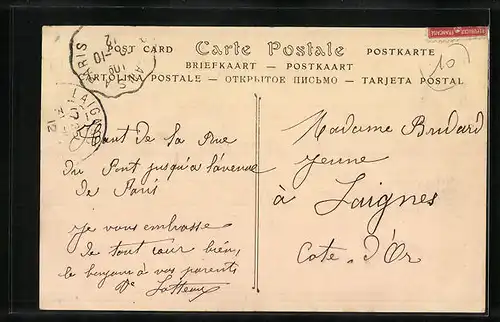 POST CARD Carte Postale POSTKARTE
BRIEFKAART — POSTKAART
CARTOLINA POSTALE — ОТКРЫТОЕ ПИСЬМО — TARJETA POSTAL
PARIS
10
Haut de la Rue
du Pont jusqu'a l'avenue
de Paris
Je vous embrasse
de tout cœur bien,
le à vos parents
Madame Budard
Jeune
à Laignes
Cote-d'Or